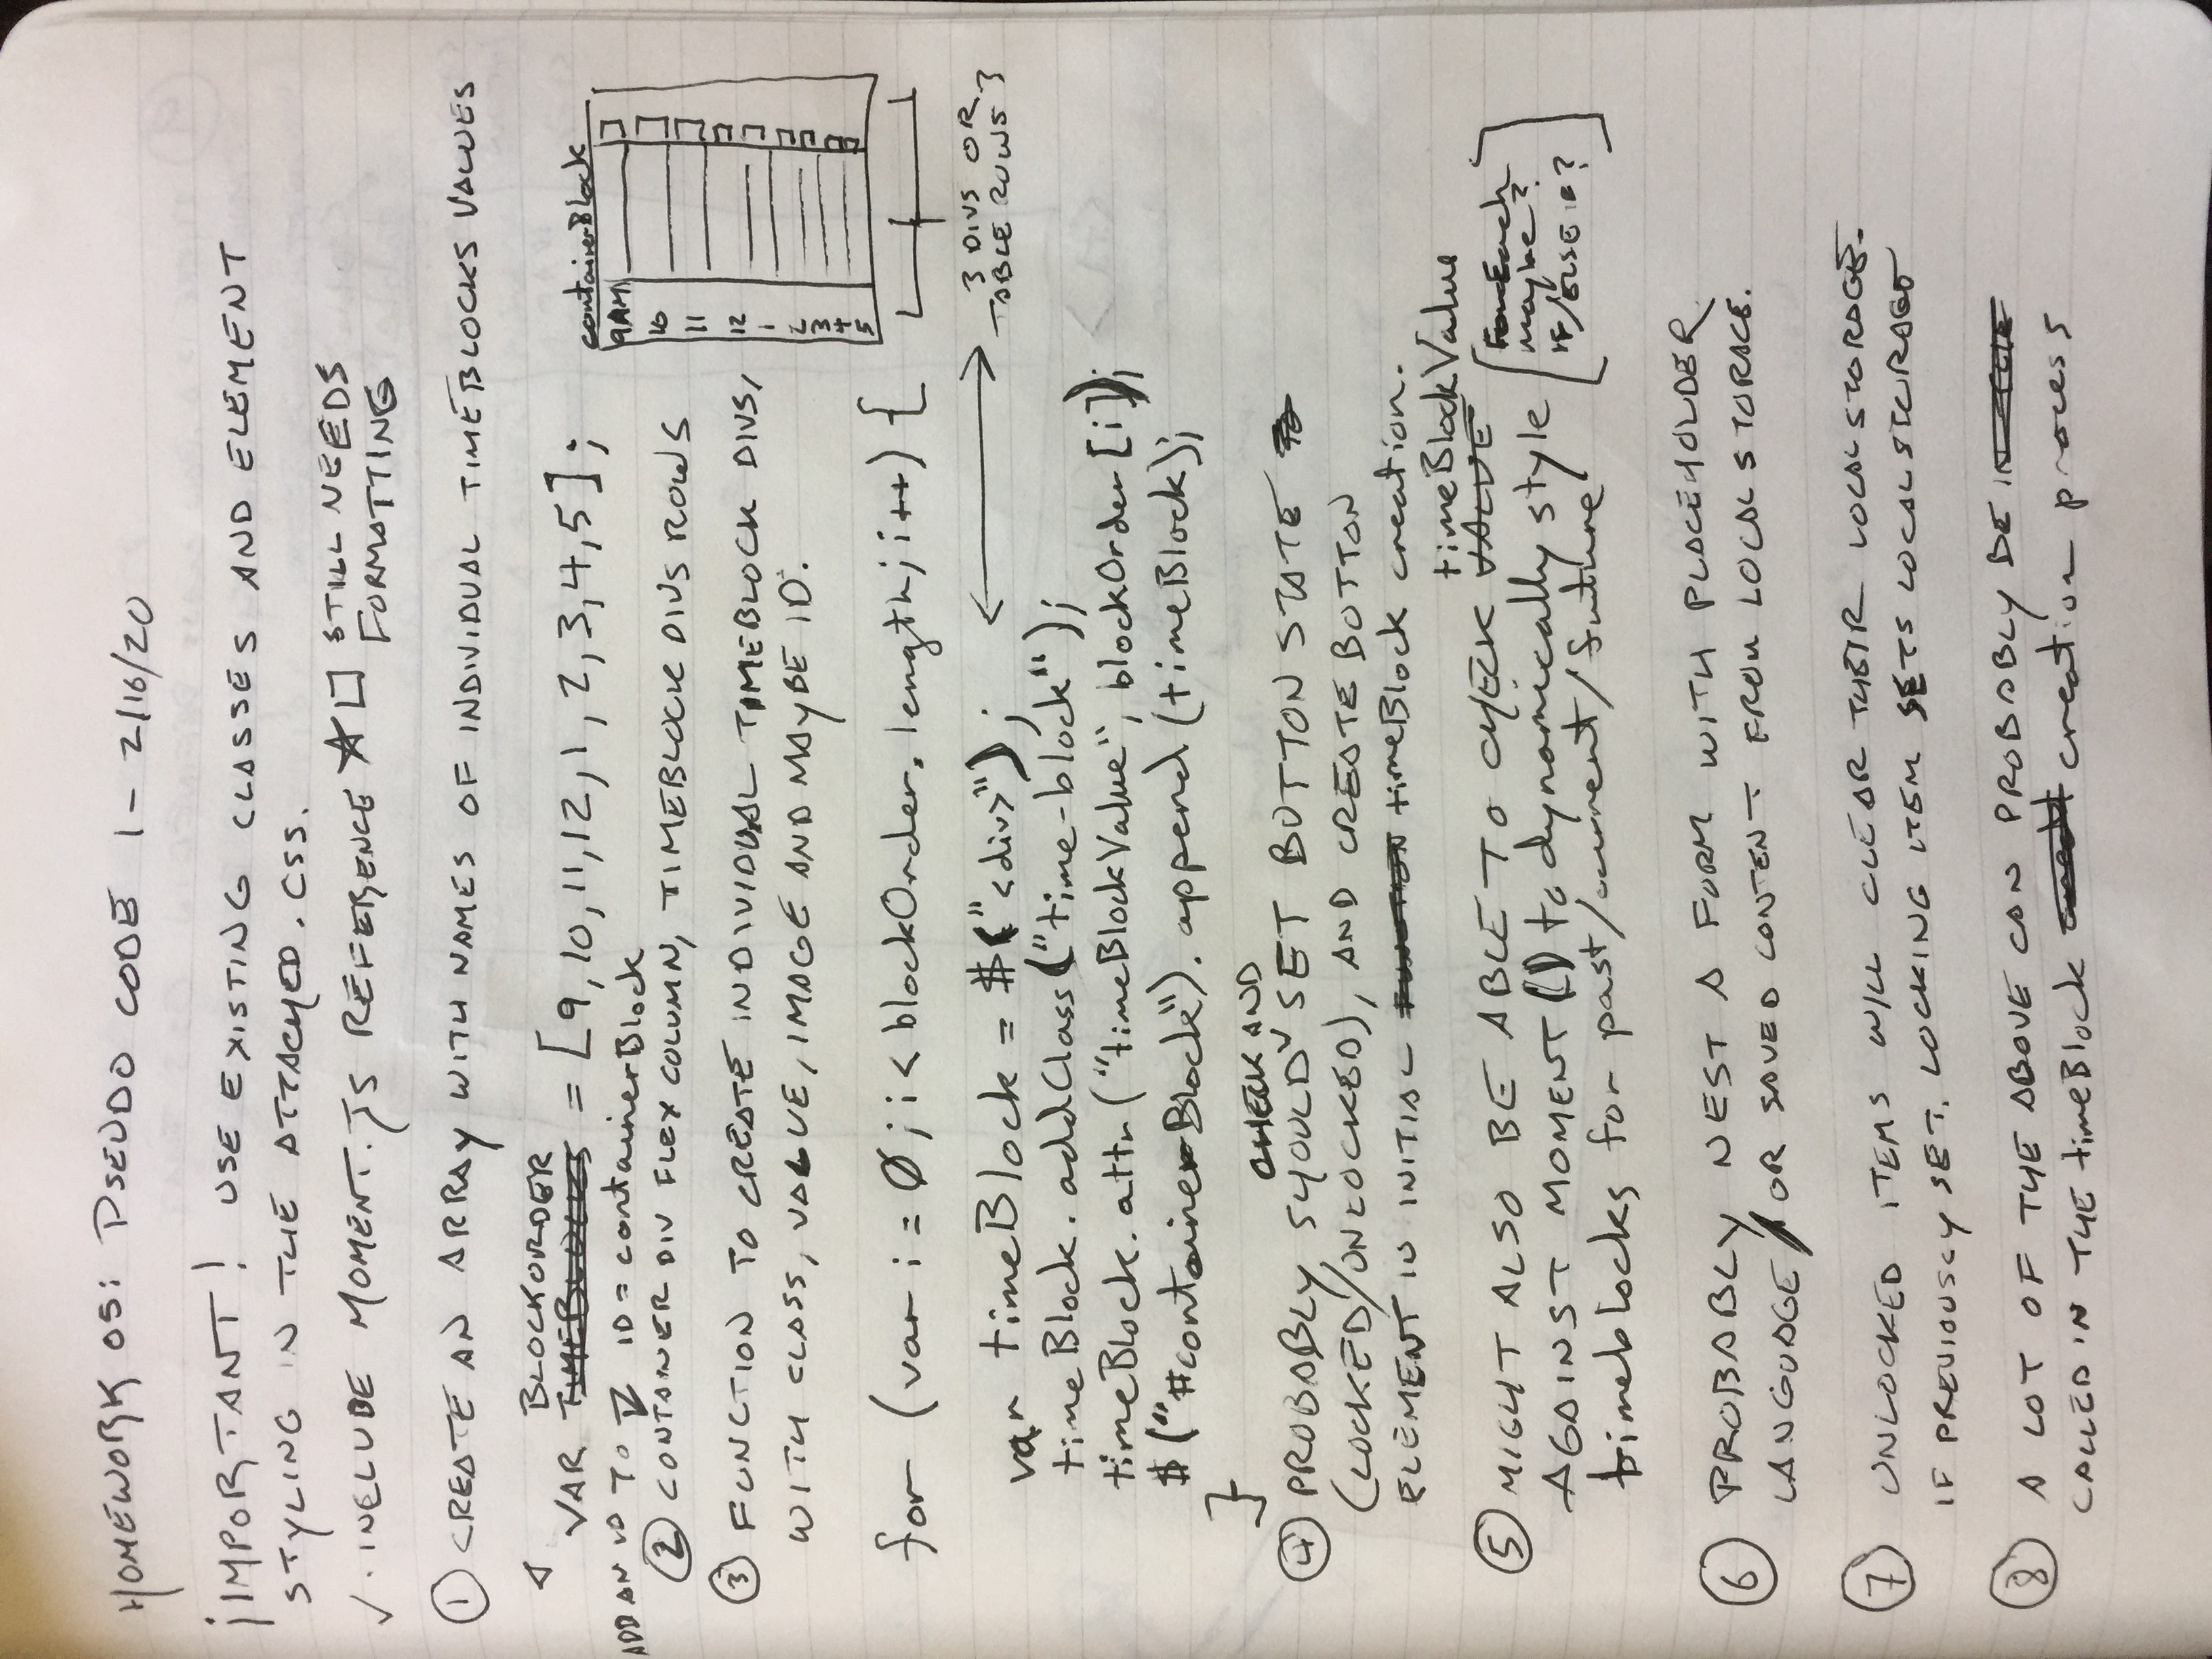 HOMEWORK 05: PSEUDO CODE 1 - 2/16/20
¡IMPORTANT! USE EXISTING CLASSES AND ELEMENT
STYLING IN THE ATTACHED .CSS.
✓ · INCLUDE MOMENT.JS REFERENCE ☆ □ STILL NEEDS
FORMATTING
① CREATE AN ARRAY WITH NAMES OF INDIVIDUAL TIMEBLOCKS VALUES
BLOCKORDER
VAR TIMEBLOCKS = [9,10,11,12,1,2,3,4,5];
ADD AN ID TO ID = containerBlock
② CONTAINER DIV FLEX COLUMN, TIMEBLOCK DIVS ROWS
③ FUNCTION TO CREATE INDIVIDUAL TIMEBLOCK DIVS,
WITH CLASS, VALUE, IMAGE AND MAYBE ID.
containerBlock
9AM
10
11
12
1
2
3
4
5
3 DIVS OR
TABLE ROWS?
for (var i = 0; i < blockOrder.length; i++) {
var timeBlock = $("<div>");
timeBlock.addClass("time-block");
timeBlock.attr("timeBlockValue", blockOrder[i]);
$("#containerBlock").append(timeBlock);
}
CHECK AND
④ PROBABLY SHOULD SET BUTTON STATE
(LOCKED/UNLOCKED), AND CREATE BUTTON
ELEMENT IN INITIAL FUNCTION timeBlock creation.
timeBlockValue
⑤ MIGHT ALSO BE ABLE TO CHECK VALUE
AGAINST MOMENT() to dynamically style
timeblocks for past/current/future
[ForEach
maybe?
IF/ELSE IF?]
⑥ PROBABLY NEST A FORM WITH PLACEHOLDER
LANGUAGE / OR SAVED CONTENT FROM LOCAL STORAGE.
⑦ UNLOCKED ITEMS WILL CLEAR THEIR LOCAL STORAGE.
IF PREVIOUSLY SET. LOCKING ITEM SETS LOCAL STORAGE
⑧ A LOT OF THE ABOVE CAN PROBABLY BE IN THE
CALLED IN THE timeBlock creation process